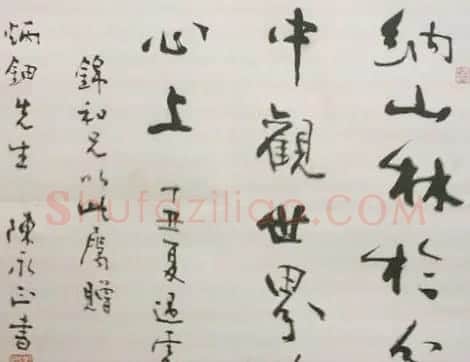 納山林於
中觀世界
心上 丁丑夏過
錦和兄以此屬贈
炳鈿先生 陳永正書
Shufaziliao.COM